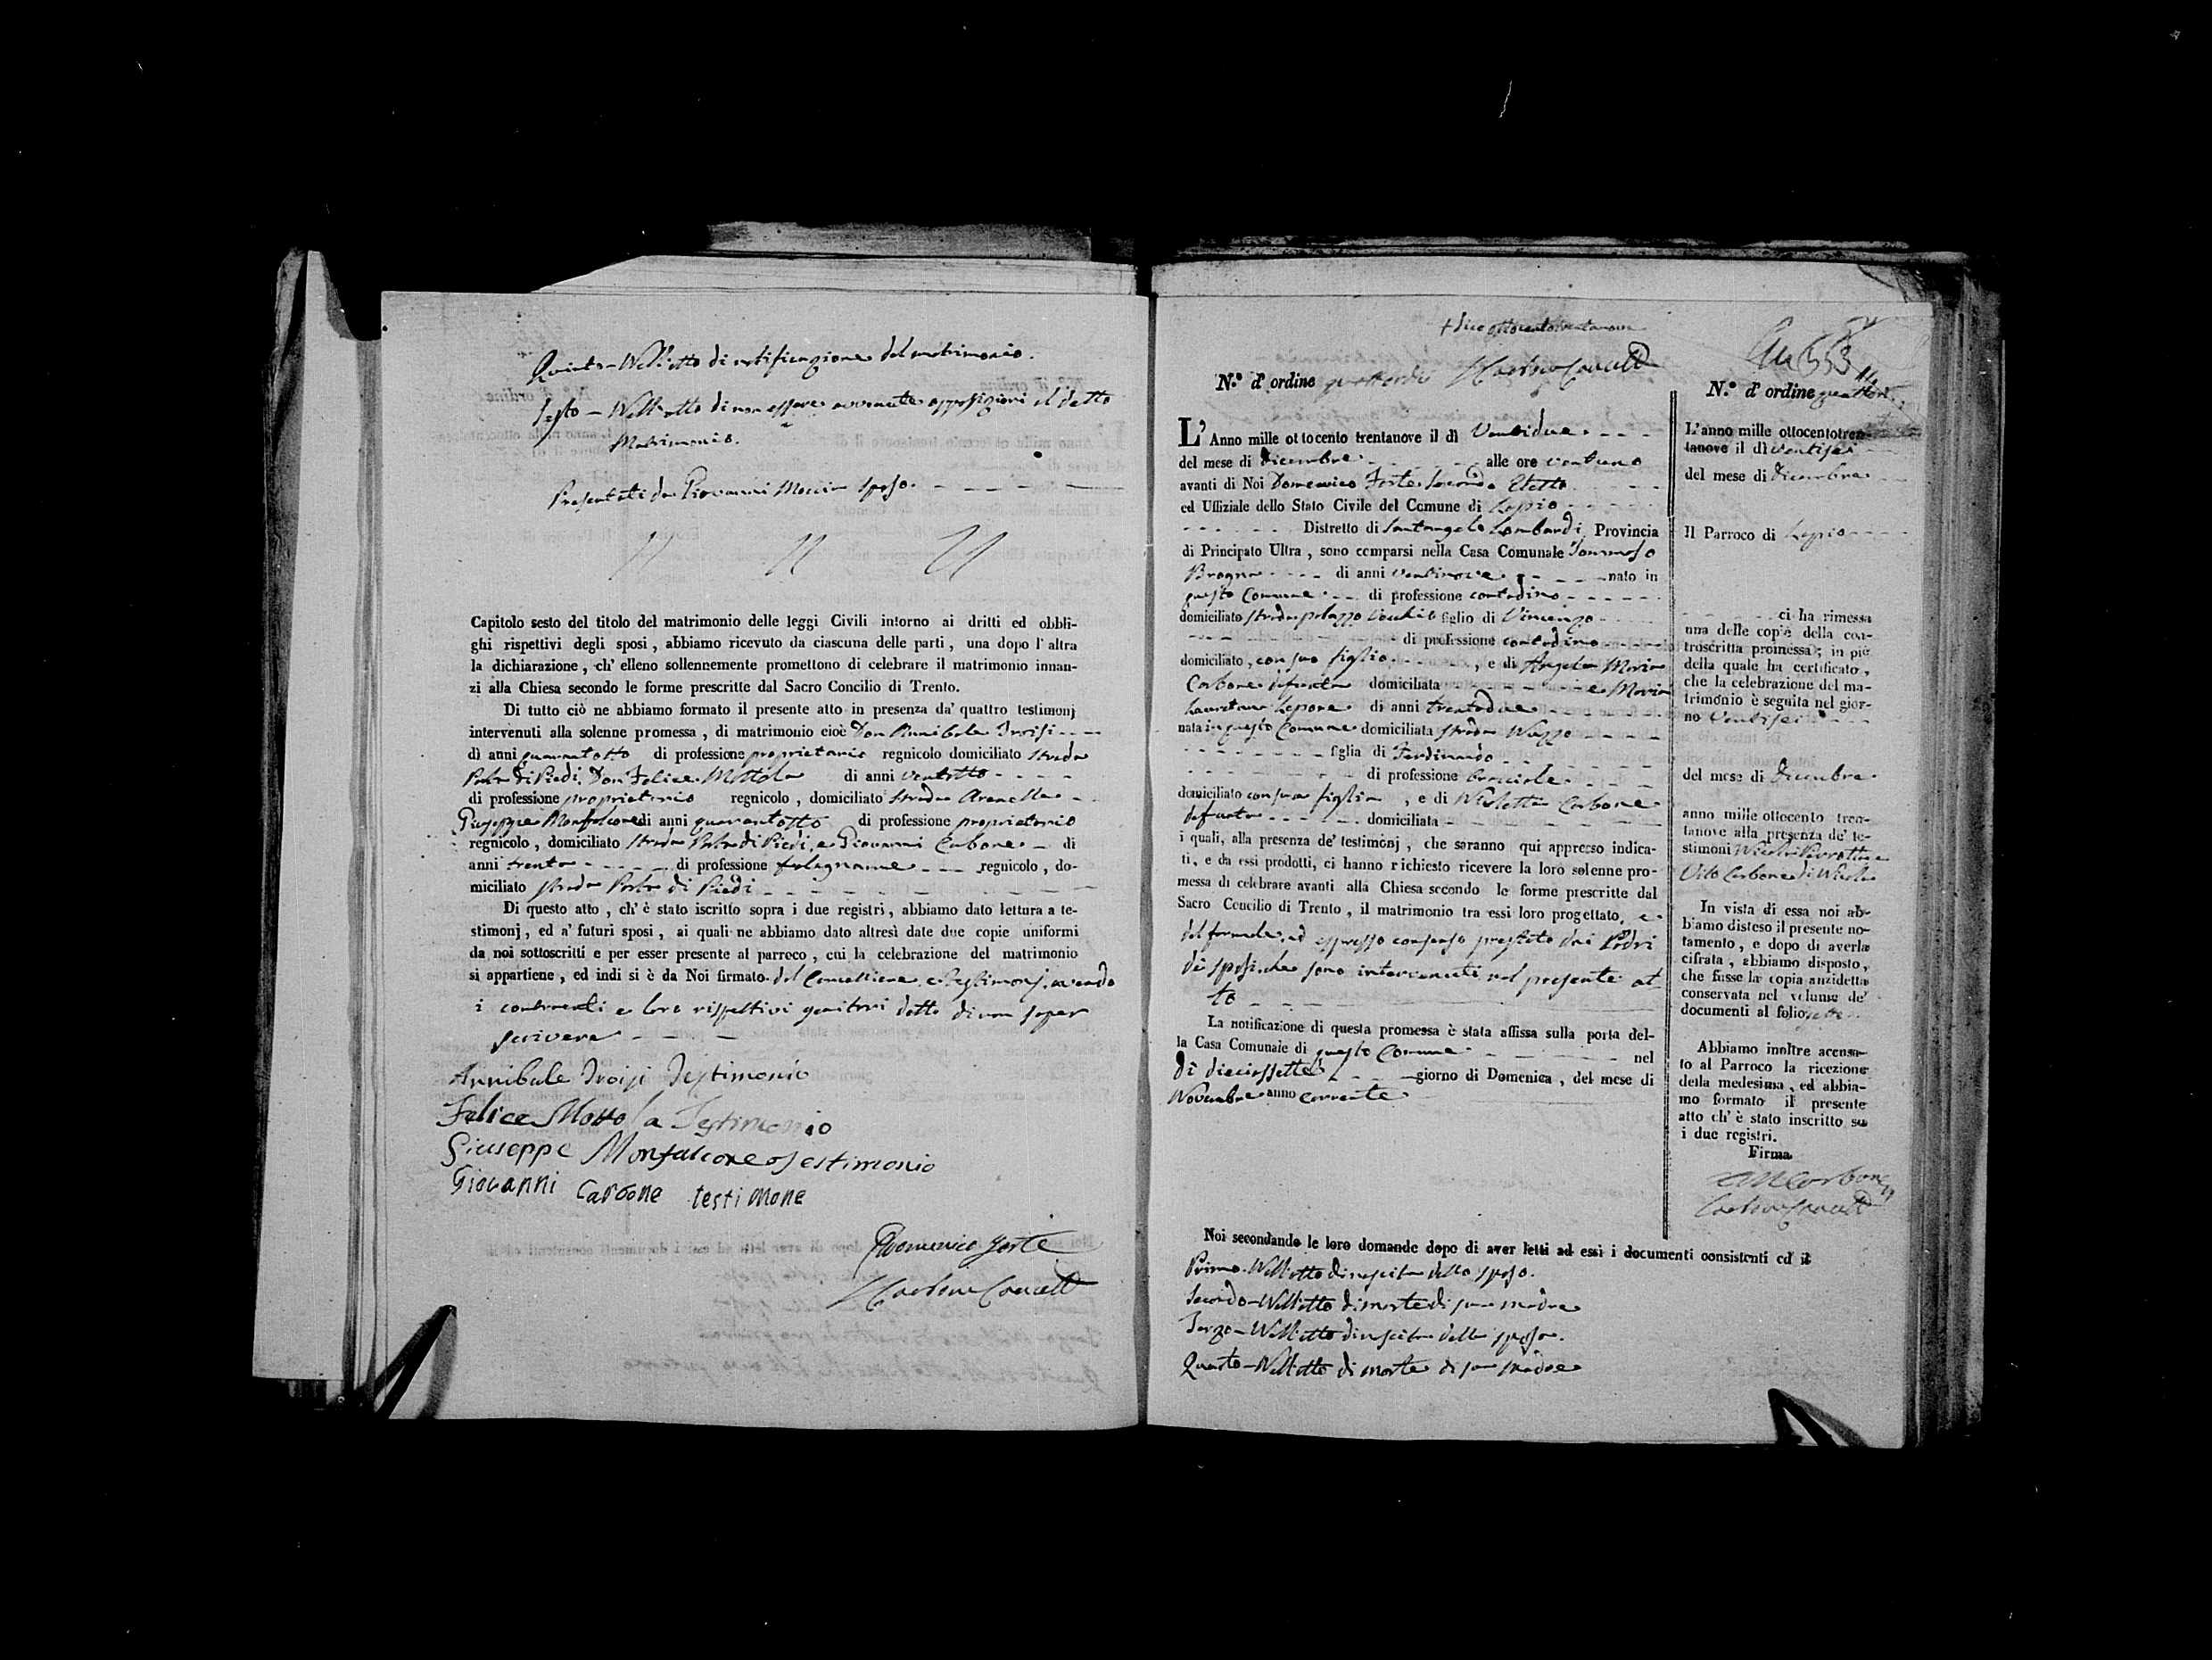 Quinto - Nell'atto di notificazione del matrimonio.
Sesto - Nell'atto di non essere avvenute opposizioni al detto
Matrimonio.
Presentati da Giovanni sposo.
Capitolo sesto del titolo del matrimonio delle leggi Civili intorno ai dritti ed obbli-
ghi rispettivi degli sposi, abbiamo ricevuto da ciascuna delle parti, una dopo l'altra
la dichiarazione, ch' elleno sollennemente promettono di celebrare il matrimonio innan-
zi alla Chiesa secondo le forme prescritte dal Sacro Concilio di Trento.
Di tutto ciò ne abbiamo formato il presente atto in presenza da' quattro testimonj
intervenuti alla solenne promessa, di matrimonio cioè Don Annibale Troisi
di anni quarantotto di professione proprietario regnicolo domiciliato strada
Porta di Piedi, Don Felice Mottola di anni ventotto
di professione proprietario regnicolo, domiciliato strada Arenella
Giuseppe Monfalcone di anni quarantotto di professione proprietario
regnicolo, domiciliato strada Porta di Piedi, e Giovanni Carbone di
anni trenta di professione falegname regnicolo, do-
miciliato strada Porta di Piedi
Di questo atto, ch' è stato iscritto sopra i due registri, abbiamo dato lettura a te-
stimonj, ed a' futuri sposi, ai quali ne abbiamo dato altresì date due copie uniformi
da noi sottoscritti e per esser presente al parroco, cui la celebrazione del matrimonio
si appartiene, ed indi si è da Noi firmato. dal Cancelliere, e testimonj, avendo
i contraenti e loro rispettivi genitori detto di non saper
scrivere
Annibale Troisi Testimonio
Felice Mottola Testimonio
Giuseppe Monfalcone Testimonio
Giovanni Carbone testimone
Domenico Forte
Carbone Cancell
+ dico ottocentotrentanove
Carbone Cancell
N.º d' ordine quattordici
L' Anno mille ottocento trentanove il dì Ventidue
del mese di Dicembre alle ore ventuno
avanti di Noi Domenico Forte Secondo Eletto
ed Uffiziale dello Stato Civile del Comune di Lapio
Distretto di Santangelo Lombardi Provincia
di Principato Ultra, sono comparsi nella Casa Comunale Tommaso
Bragna di anni ventinove nato in
questo Comune di professione contadino
domiciliato strada palazzo vecchio figlio di Vincenzo
di professione contadino
domiciliato, con suo figlio, e di Angela Maria
Carbone defunta domiciliata e Maria
Lauretana Lepore di anni trentadue
nata in questo Comune domiciliata strada
figlia di Ferdinando
di professione bracciale
domiciliato con sua figlia, e di Nicoletta Carbone
defunta domiciliata
i quali, alla presenza de' testimonj, che saranno qui appresso indica-
ti, e da essi prodotti, ci hanno richiesto ricevere la loro solenne pro-
messa di celebrare avanti alla Chiesa secondo le forme prescritte dal
Sacro Concilio di Trento, il matrimonio tra essi loro progettato, e
del formale, ed espresso consenso prestato dai Padri
di sposi, che sono intervenuti nel presente at
to
La notificazione di questa promessa è stata affissa sulla porta del-
la Casa Comunale di questo Comune nel
dì diecissette giorno di Domenica, del mese di
Novembre anno corrente
Noi secondando le loro domande dopo di aver letti ad essi i documenti consistenti ed il
Primo - Nell'atto di nascita dello sposo.
Secondo - Nell'atto di morte di sua madre
Terzo - Nell'atto di nascita della sposa.
Quarto - Nell'atto di morte di sua madre
N.º d' ordine
L'anno mille ottocentotren-
tanove il dì ventisei
del mese di Dicembre
Il Parroco di Lapio
ci ha rimessa
una delle copie della con-
troscritta promessa; in piè
della quale ha certificato,
che la celebrazione del ma-
trimonio è seguita nel gior-
no Ventisei
del mese di Dicembre
anno mille ottocento tren-
tanove alla presenza de' te-
stimoni e
Vito Carbone di Nicola
In vista di essa noi ab-
biamo disteso il presente no-
tamento, e dopo di averla
cifrata, abbiamo disposto,
che fusse la copia anzidetta
conservata nel volume de'
documenti al folio
Abbiamo inoltre accusa-
to al Parroco la ricezione
della medesima, ed abbia-
mo formato il presente
atto ch' è stato inscritto su
i due registri.
Firma
Carbone
Carbone Cancell